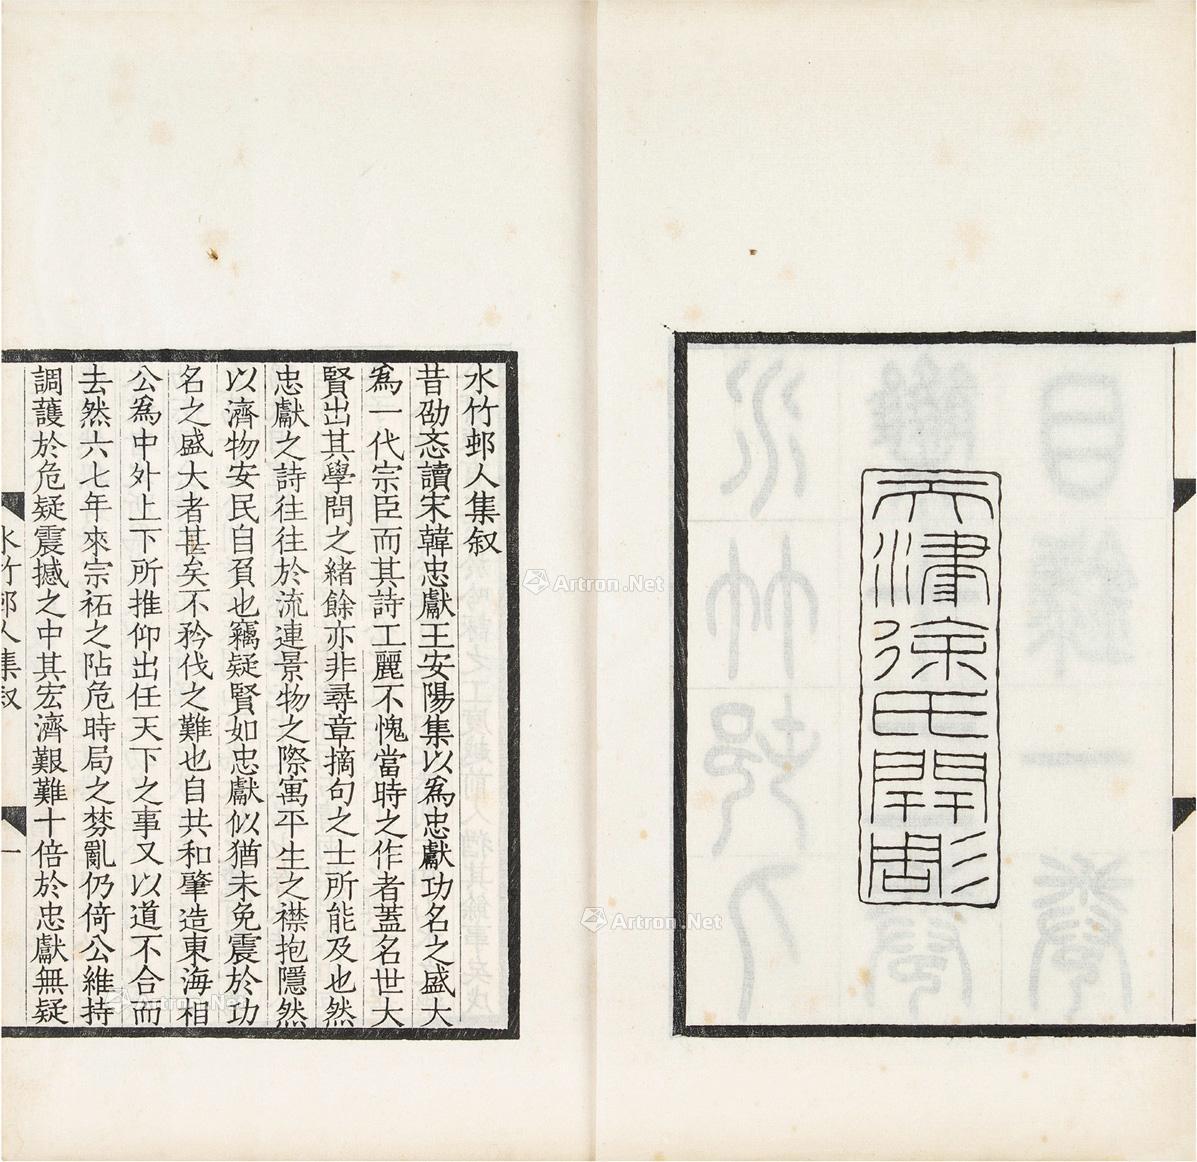 天津徐氏開彫
水竹邨人集叙
昔劭忞讀宋韓忠獻王安陽集以為忠獻功名之盛大
為一代宗臣而其詩工麗不愧當時之作者蓋名世大
賢出其學問之緒餘亦非尋章摘句之士所能及也然
忠獻之詩往往於流連景物之際寓平生之襟抱隱然
以濟物安民自負也竊疑賢如忠獻似猶未免震於功
名之盛大者甚矣不矜伐之難也自共和肇造東海相
公為中外上下所推仰出任天下之事又以道不合而
去然六七年來宗祏之阽危時局之棼亂仍倚公維持
調護於危疑震撼之中其宏濟艱難十倍於忠獻無疑
水竹邨人集叙
一
Artron.Net
Artron.Net
Artron.Net